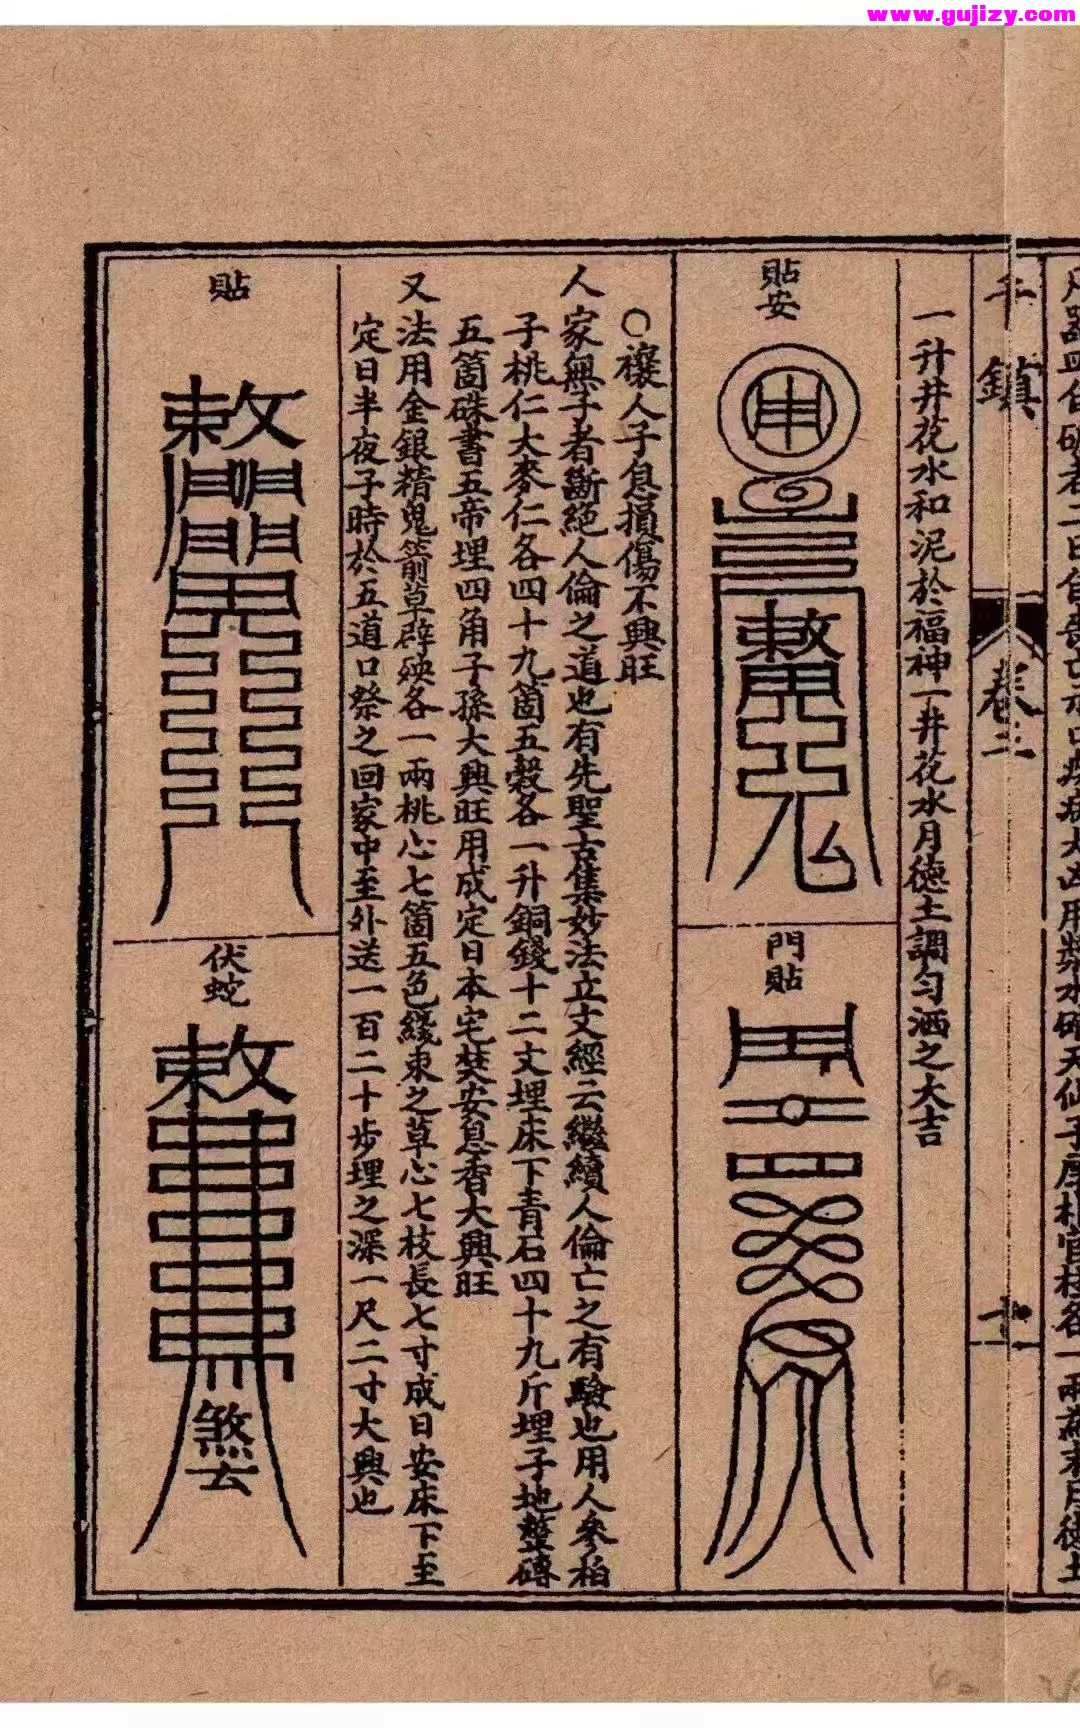 www.gujizy.com
鎮
卷二
一升井花水和泥於福神一井花水月德土調勻洒之大吉
貼安
門貼
○禳人子息損傷不興旺
人家無子者斷絕人倫之道也有先聖古集妙法立文經云繼續人倫亡之有驗也用人參柏
子桃仁大麥仁各四十九箇五穀各一升銅錢十二文埋床下青石四十九斤埋子地整磚
五箇硃書五帝埋四角子孫大興旺用成定日本宅焚安息香大興旺
又法用金銀精鬼箭草辟殃各一兩桃心七箇五色綫束之草心七枝長七寸成日安床下至
定日半夜子時於五道口祭之回家中至外送一百二十步埋之深一尺二寸大興也
貼
敕
伏蛇
敕
煞去